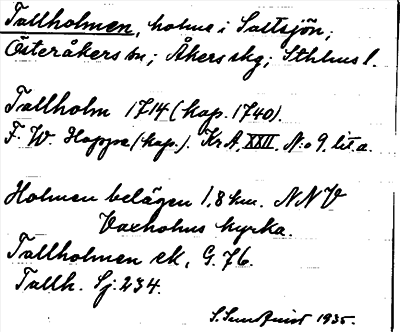 Tallholmen, holme i Saltsjön;
Österåkers sn; Åkers skg; Sthlms l.
Tallholm 1714 (kop. 1740).
F. W. Hoppe (kop.). KrA XXII. N:o 9. lit. a.
Holmen belägen 1,8 km. NNV
Vaxholms kyrka.
Tallholmen ek, G. 76.
Tallh. Sj. 234.
S. Sundquist 1935.